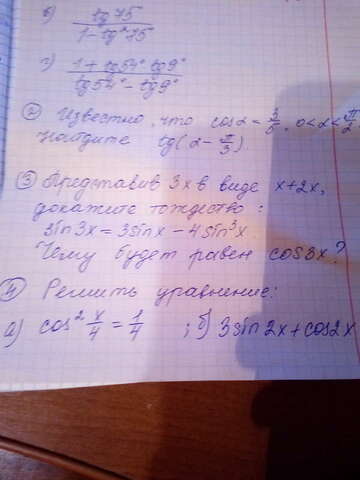 в) tg75 / 1 - tg²75
г) 1 + tg54° tg9° / tg54° - tg9°
② Известно, что cos α = 3/5, 0<α<π/2
Найдите tg(α - π/3).
③ Представив 3x в виде x+2x,
докажите тождество:
sin3x = 3sinx - 4sin³x
Чему будет равен cos3x?
④ Решить уравнение:
а) cos² x/4 = 1/4 ; б) 3sin2x + cos2x